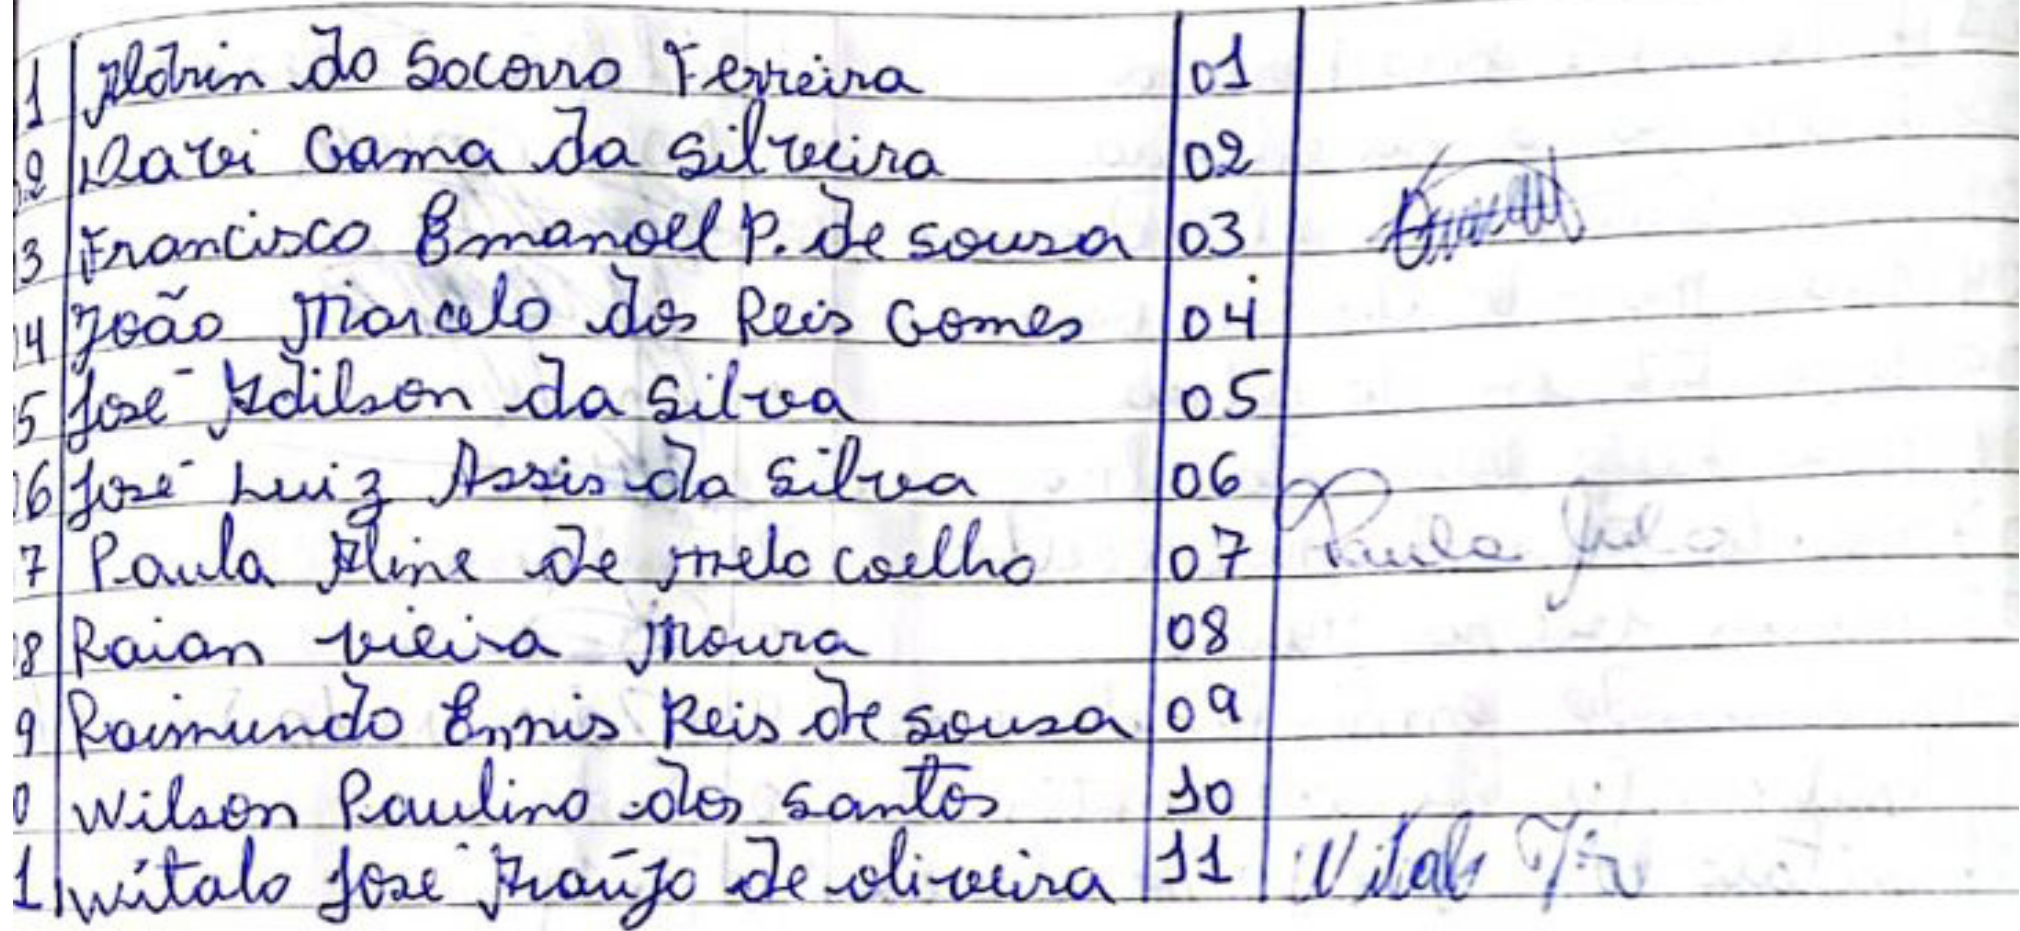 1 Aldrin do Socorro Ferreira 01
02 Davi Gama da Silveira 02
3 Francisco Emanoel P. de Sousa 03
04 João Marcelo dos Reis Gomes 04
05 José Adilson da Silva 05
06 José Luiz Assis da Silva 06 Paula
7 Paula Aline de Melo Coelho 07
08 Raian Vieira Moura 08
9 Raimundo Ennis Reis de Sousa 09
0 Wilson Paulino dos Santos 10
1 Wítalo José Araújo de Oliveira 11 Witalo José